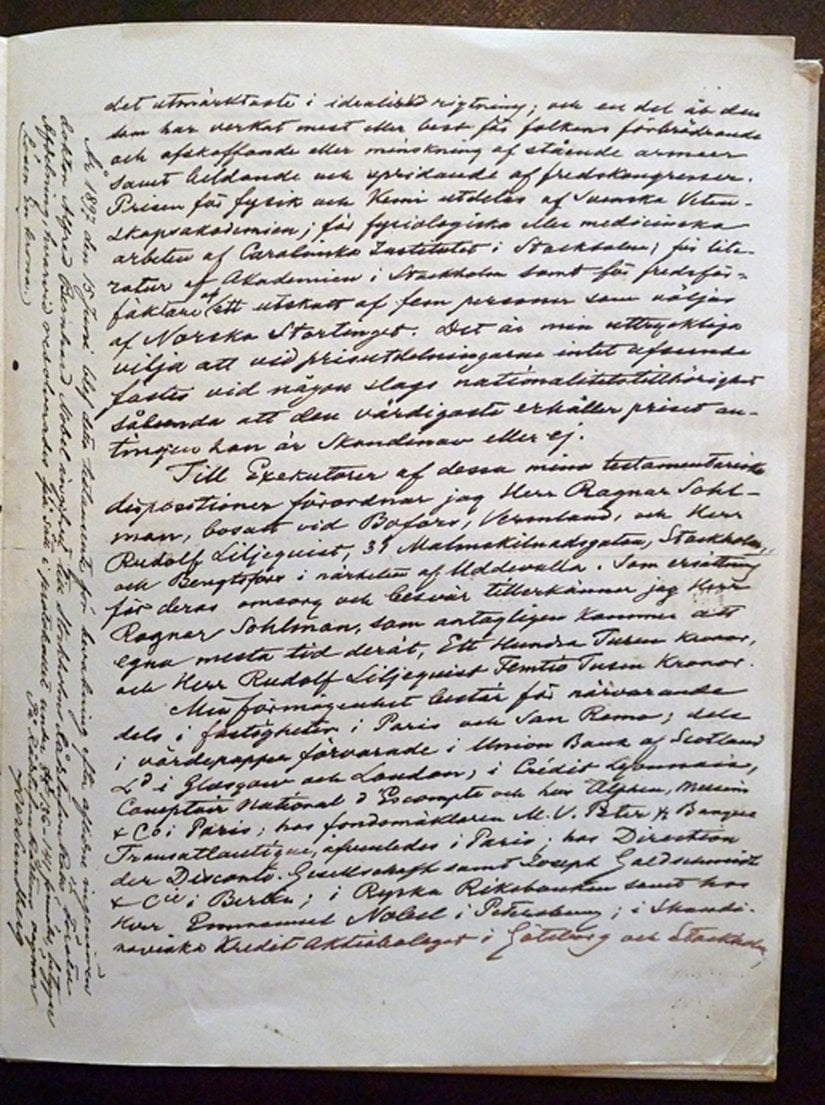 det utmärktaste i idealisk rigtning; och en del åt den
som har verkat mest eller best för folkens förbrödrande
och afskaffande eller minskning af stående armeer
samt bildande och spridande af fredskongresser.
Prisen för fysik och Kemi utdelas af Svenska Veten-
skapsakademien; för fysiologiska eller medicinska
arbeten af Carolinska Institutet i Stockholm; för lite-
ratur af Akademien i Stockholm samt för fredsför-
fäktare af ett utskott af fem personer som väljas
af Norska Stortinget. Det är min uttryckliga
vilja att vid prisutdelningarne intet afseende
fästes vid någon slags nationalitetstillhörighet
sålunda att den värdigaste erhåller priset an-
tingen han är Skandinav eller ej.
Till Exekutorer af dessa mina testamentariska
dispositioner förordnar jag Herr Ragnar Sohl-
man, bosatt vid Bofors, Vermland, och Herr
Rudolf Liljequist, 31 Malmskilnadsgatan, Stockholm,
och Bengtsfors i närheten af Uddevalla. Som ersättning
för deras omsorg och besvär tillerkänner jag Herr
Ragnar Sohlman, som antagligen kommer att
egna mesta tid deråt, Ett Hundra Tusen Kronor,
och Herr Rudolf Liljequist Femtio Tusen Kronor.
Min förmögenhet består för närvarande
dels i fastigheter i Paris och San Remo; dels
i värdepapper förvarade i Union Bank of Scotland
Ld i Glasgow och London, i Crédit Lyonnais,
Comptoir National d'Escompte och hos Alphen, Messin
& Co i Paris; hos fondsmäklaren M. V. Peter & Banque
Transatlantique, afvenledes i Paris; hos Direction
der Disconto Gesellschaft samt Joseph Goldschmidt
& Cie i Berlin; i Ryska Riksbanken samt hos
Herr Emmanuel Nobel i Petersburg; i Skandi-
naviska Kredit Aktiebolaget i Göteborg och Stockholm,
År 1897 den 15 Juni blef detta testamente för bevakning efter aflidne ingeniören
doktor Alfred Bernhard Nobel ingifvet till Stockholms Rådstufvu Rätts
Afdelning, hvarvid resolverades på sätt i protokollet under
Lösen En krona